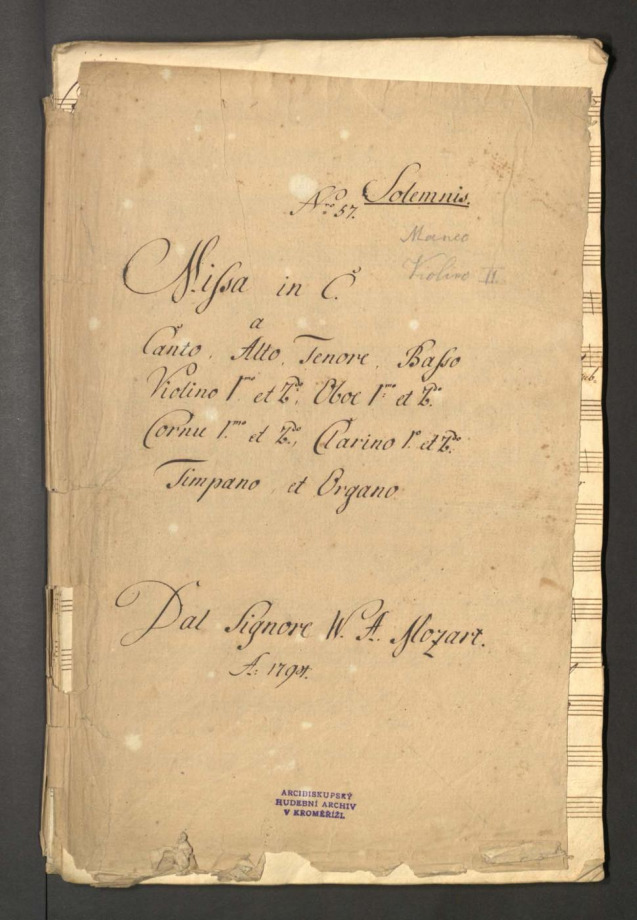 Nro 57. Solemnis.
Manco
Violino II.
Missa in C.
a
Canto, Alto, Tenore, Basso
Violino 1mo et 2do, Oboe 1mo et 2do
Cornu 1mo et 2do, Clarino 1o et 2do
Timpano et Organo
Dal Signore W. A. Mozart.
A: 1794.
ARCIDISKUPSKÝ
HUDEBNÍ ARCHIV
V KROMĚŘÍŽI.